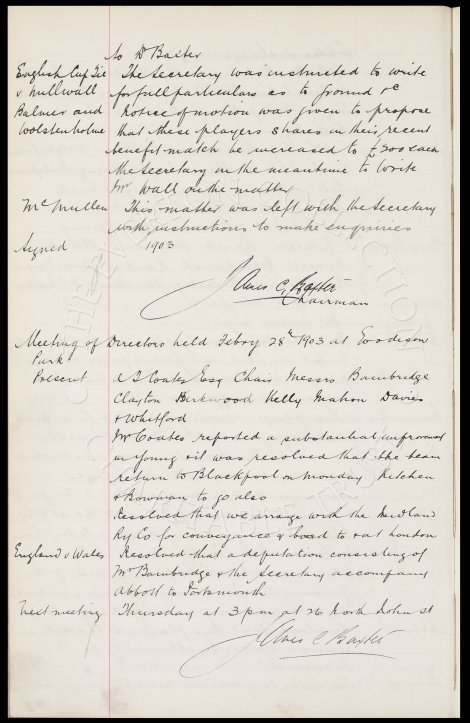 to Dr Baxter
English Cup Tie The Secretary was instructed to write
v Millwall for full particulars as to ground &c
Balmer and Notice of motion was given to propose
Wolstenholme that these players shares in their recent
benefit match be increased to £200 each
the Secretary in the meantime to write
Mr Wall on the matter
McMullen This matter was left with the Secretary
with instructions to make enquiries
Signed 1903
James C Baxter
Chairman
Meeting of Directors held Febry 28th 1903 at Goodison
Park
Present A T Coates Esq Chair Messrs Bainbridge
Clayton Kirkwood Kelly Mahon Davies
& Whitford
Mr Coates reported a substantial improvemt
in Young & it was resolved that the team
return to Blackpool on Monday Kitchen
& Bowman to go also
Resolved that we arrange with the Midland
Ry Co for conveyance & board to & at London
England v Wales Resolved that a deputation consisting of
Mr Bainbridge & the Secretary accompany
Abbott to Portsmouth
Next meeting Thursday at 3 pm at 26 North John St
James C Baxter